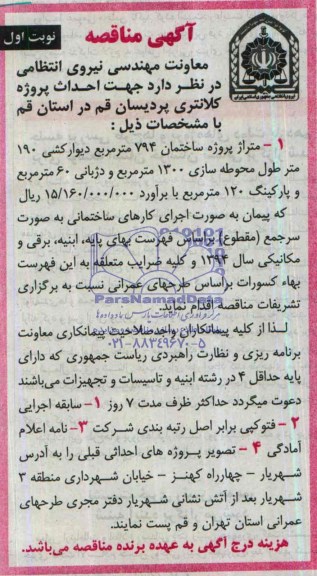 آگهی مناقصه
نوبت اول
معاونت مهندسی نیروی انتظامی
در نظر دارد جهت احداث پروژه
کلانتری پردیسان قم در استان قم
با مشخصات ذیل :
۱ - متراژ پروژه ساختمان ۷۹۴ مترمربع دیوارکشی ۱۹۰
متر طول محوطه سازی ۱۳۰۰ مترمربع و دژبانی ۶۰ مترمربع
و پارکینگ ۱۲۰ مترمربع با برآورد ۱۵/۱۶۰/۰۰۰/۰۰۰ ریال
که پیمان به صورت اجرای کارهای ساختمانی به صورت
سرجمع (مقطوع) براساس فهرست بهای پایه، ابنیه، برقی و
مکانیکی سال ۱۳۹۴ و کلیه ضرایب متعلقه به این فهرست
بهاء کسورات براساس طرحهای عمرانی نسبت به برگزاری
تشریفات مناقصه اقدام نماید.
ParsNamadData
۰۲۱-۸۸۳۴۹۶۷۰-۵
لذا از کلیه پیمانکاران واجدصلاحیت پیمانکاری معاونت
برنامه ریزی و نظارت راهبردی ریاست جمهوری که دارای
پایه حداقل ۴ در رشته ابنیه و تاسیسات و تجهیزات می‌باشند
دعوت میگردد حداکثر ظرف مدت ۷ روز ۱- سابقه اجرایی
۲ - فتوکپی برابر اصل رتبه بندی شرکت ۳- نامه اعلام
آمادگی ۴ - تصویر پروژه های احداثی قبلی را به آدرس
شهریار - چهارراه کهنز - خیابان شهرداری منطقه ۳
شهریار بعد از آتش نشانی شهریار دفتر مجری طرحهای
عمرانی استان تهران و قم پست نمایند.
هزینه درج آگهی به عهده برنده مناقصه می‌باشد.